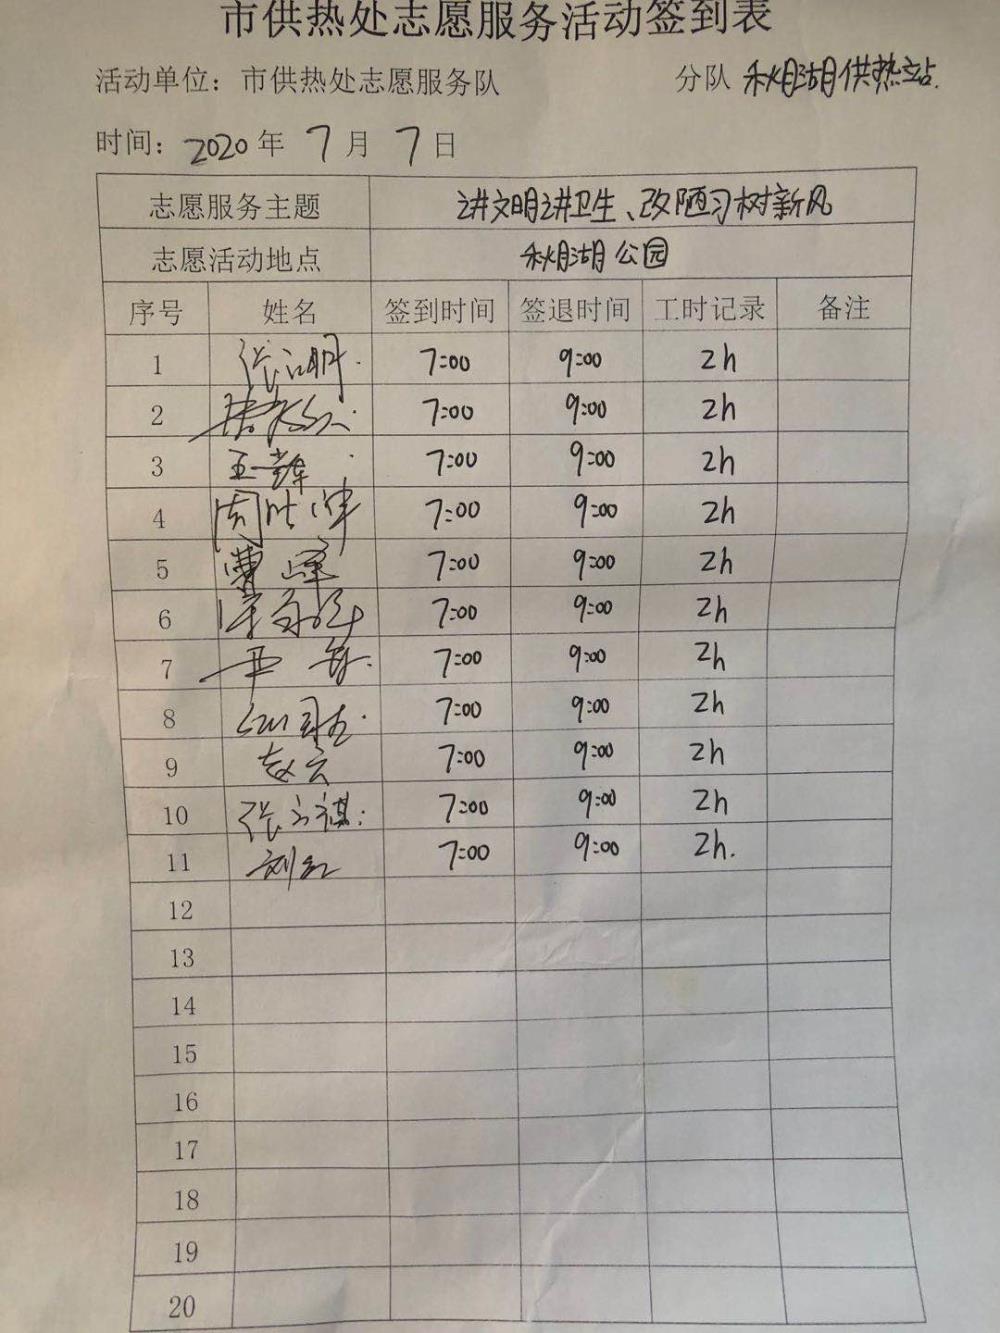 市供热处志愿服务活动签到表
活动单位：市供热处志愿服务队 分队 秋月湖供热站.
时间：2020 年 7 月 7 日
志愿服务主题 讲文明讲卫生、改陋习树新风
志愿活动地点 秋月湖公园
序号 姓名 签到时间 签退时间 工时记录 备注
1 7:00 9:00 2h
2 7:00 9:00 2h
3 7:00 9:00 2h
4 7:00 9:00 2h
5 曹峰 7:00 9:00 2h
6 7:00 9:00 2h
7 7:00 9:00 2h
8 7:00 9:00 2h
9 赵云 7:00 9:00 2h
10 7:00 9:00 2h
11 刘红 7:00 9:00 2h.
12
13
14
15
16
17
18
19
20